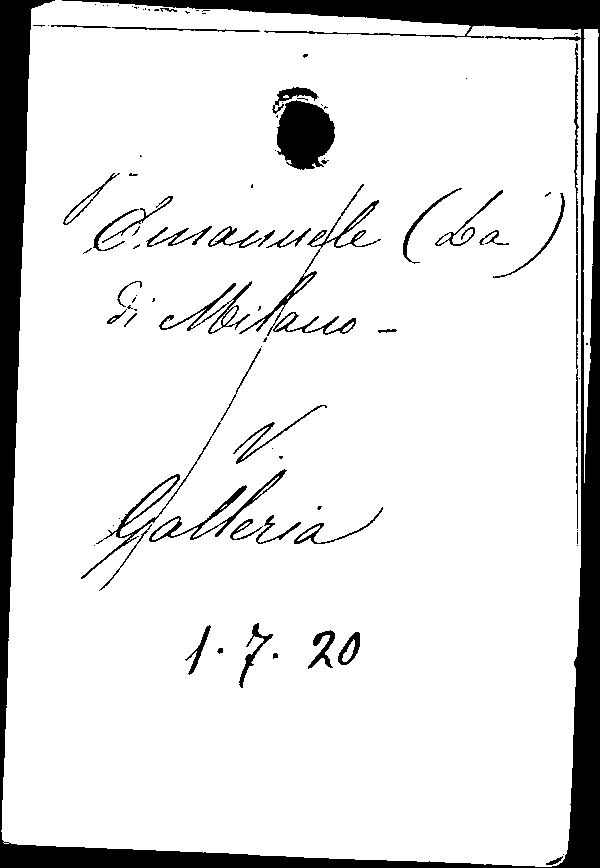 Emanuele (La)
di Milano -
V.
Galleria
1. 7. 20